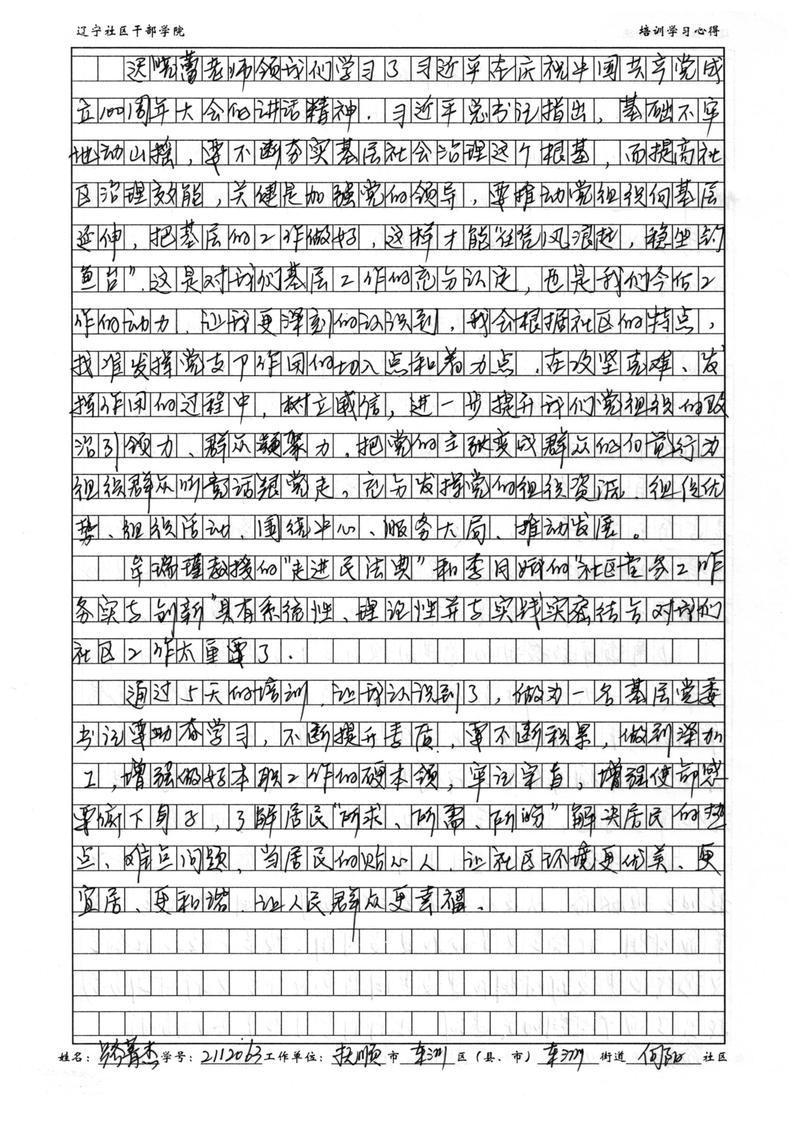 辽宁社区干部学院 培训学习心得
迟晓蕾老师领我们学习了习近平在庆祝中国共产党成
立100周年大会的讲话精神．习近平总书记指出，基础不牢
地动山摇，要不断夯实基层社会治理这个根基，而提高社
区治理效能，关健是加强党的领导，要推动党组织向基层
延伸，把基层的工作做好，这样才能“任凭风浪起，稳坐钓
鱼台”．这是对我们基层工作的充分认定，也是我们今后工
作的动力．让我更深刻的认识到，我会根据社区的特点，
找准发挥党支下作用的切入点和着力点．在攻坚克难、发
挥作用的过程中，树立威信，进一步提升我们党组织的政
治引领力、群众凝聚力．把党的主张变成群众的行动
组织群众听党话跟党走，充分发挥党的组织资源．组织优
势、组织活动、围绕中心、服务大局、推动发展。
牟瑞瑾教授的“走进民法典”和李月娥的“社区党务工作
务实与创新”具有系统性、理论性并与实践紧密结合对我们
社区工作太重要了．
通过5天的培训．让我认识到了，做为一名基层党委
书记要助奋学习，不断提升素质，要不断积累，做到深加
工，增强做好本职工作的硬本领，牢记宗旨，增强使命感
要俯下身子，了解居民“所求、所需、所盼”解决居民的热
点、难点问题，当居民的贴心人．让社区环境更优美、更
宜居、更和谐．让人民群众更幸福．
姓名： 菁杰 学号：2112063 工作单位：抚顺 市 东洲 区（县、市） 东洲 街道 社区